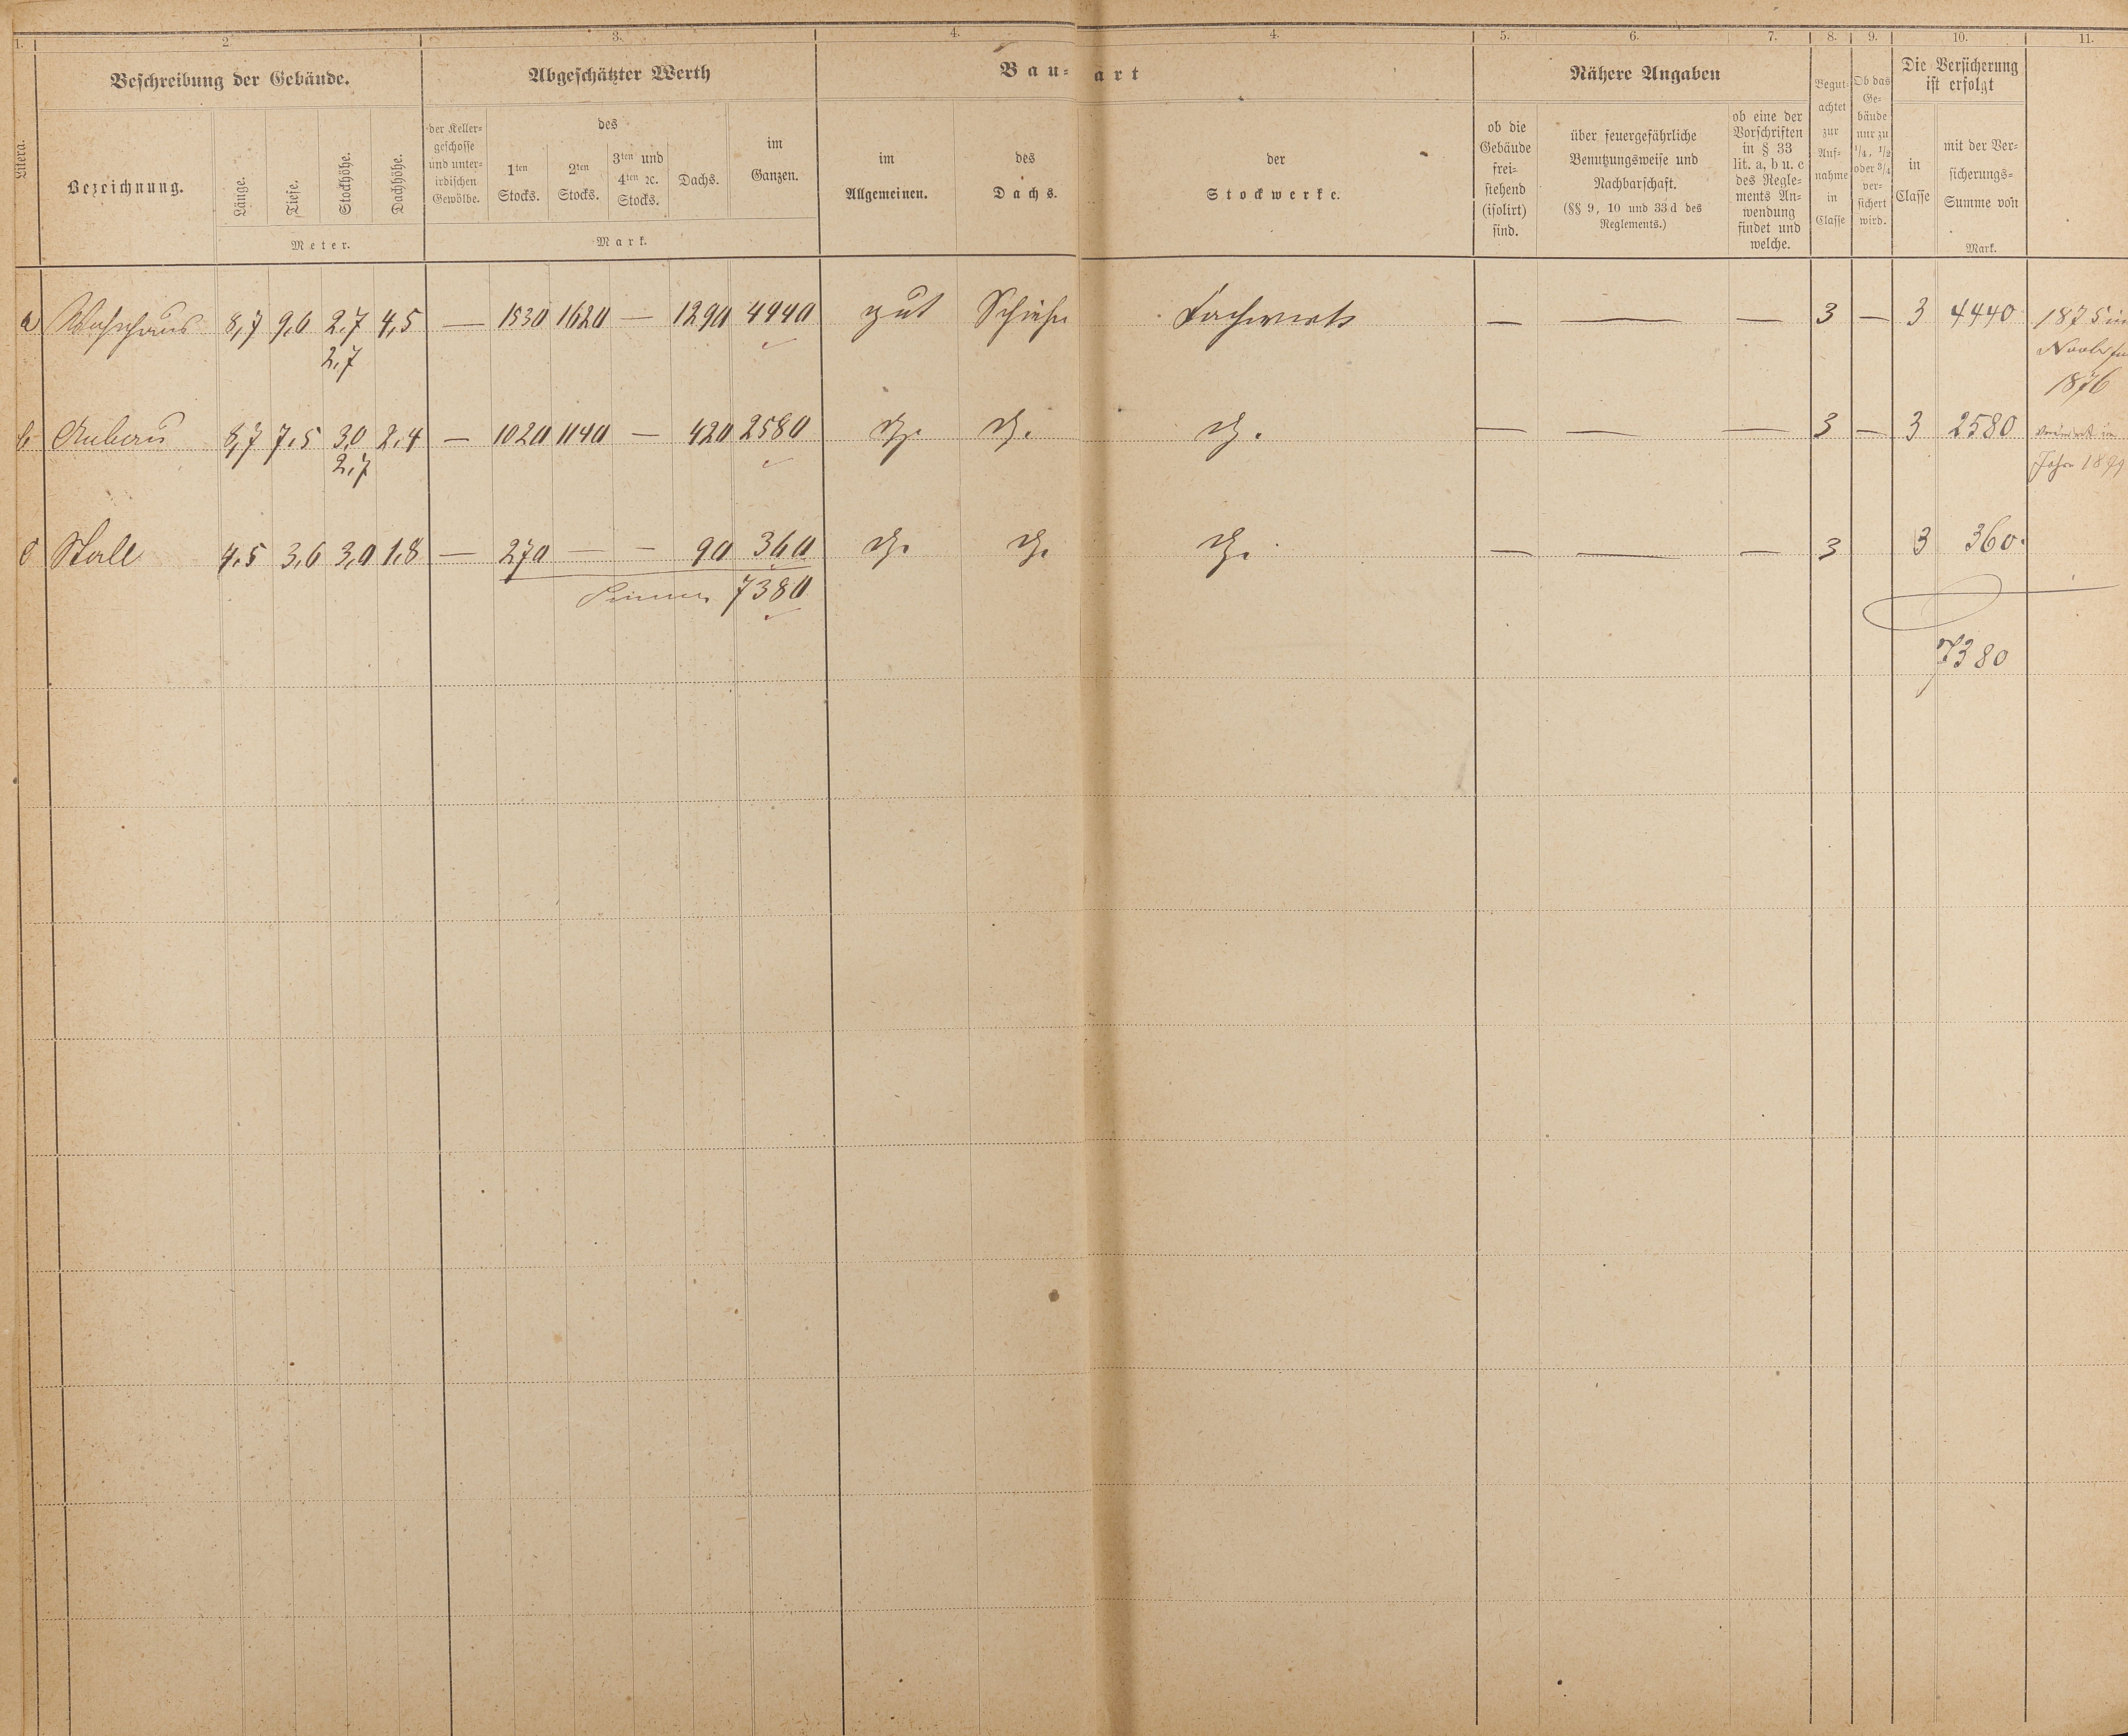 1. 2 3. 4. 4. 5. 6. 7. 8. 9. 10. 11.
Litera.
Beschreibung der Gebäude.
Bezeichnung.
Länge.
Tiefe.
Stockhöhe.
Dachhöhe.
Meter.
Abgeschätzter Werth
der Keller-
geschosse
und unter-
irdischen
Gewölbe.
des
1ten
Stocks.
2ten
Stocks.
3ten und
4ten ꝛc.
Stocks.
Dachs.
im
Ganzen.
Mark.
Bau-art
im
Allgemeinen.
des
Dachs.
der
Stockwerke.
Nähere Angaben
ob die
Gebäude
frei-
stehend
(isolirt)
sind.
über feuergefährliche
Benutzungsweise und
Nachbarschaft.
(§§ 9, 10 und 33 d des
Reglements.)
ob eine der
Vorschriften
in § 33
lit. a, b u. c
des Regle-
ments An-
wendung
findet und
welche.
Begut-
achtet
zur
Auf-
nahme
in
Classe
Ob das
Ge-
bäude
nur zu
1/4, 1/2
oder 3/4
ver-
sichert
wird.
Die Versicherung
ist erfolgt
in
Classe
mit der Ver-
sicherungs-
Summe von
Mark.
a Wohnhaus 8,7 9,6 2,7 4,5 — 1530 1620 — 1290 4440 gut Schiefer Fachwerk — — — 3 — 3 4440 1875 in
2,7
1876
b Anbau 8,7 7,5 3,0 2,4 — 1020 1140 — 420 2580 dg. dg. dg. — — — 3 — 3 2580
2,7
Jahre
c Stall 4,5 3,6 3,0 1,8 — 270 — — 90 360 dg. dg. dg. — — — 3 3 360.
Summa 7380
7380